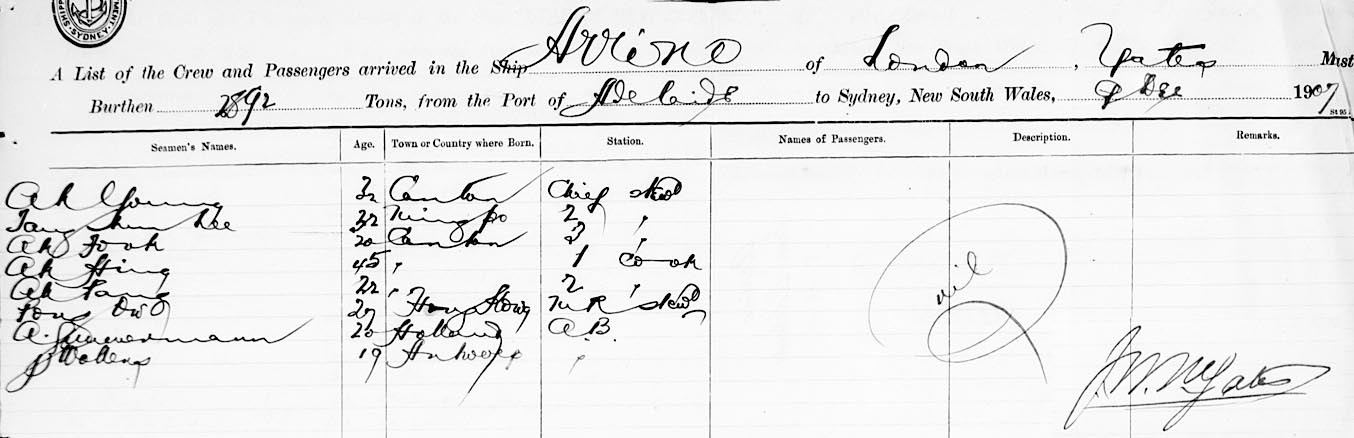 SHIPPING SYDNEY
A List of the Crew and Passengers arrived in the Ship Arrino of London, Yates Mast
Burthen 2892 Tons, from the Port of Adelaide to Sydney, New South Wales, 9 Dec 1907
Seamen's Names. Age. Town or Country where Born. Station. Names of Passengers. Description. Remarks.
Ah Young 32 Canton Chief Stwd
32 Ningpo 2 "
Ah Fook 20 Canton 3 "
Ah Hing 45 " 1 Cook
Ah 22 " 2 "
27 Hong Kong M R Stwd
A. Zimmermann 20 Holland A.B.
J Wollens 19 Antwerp "
nil
Yates